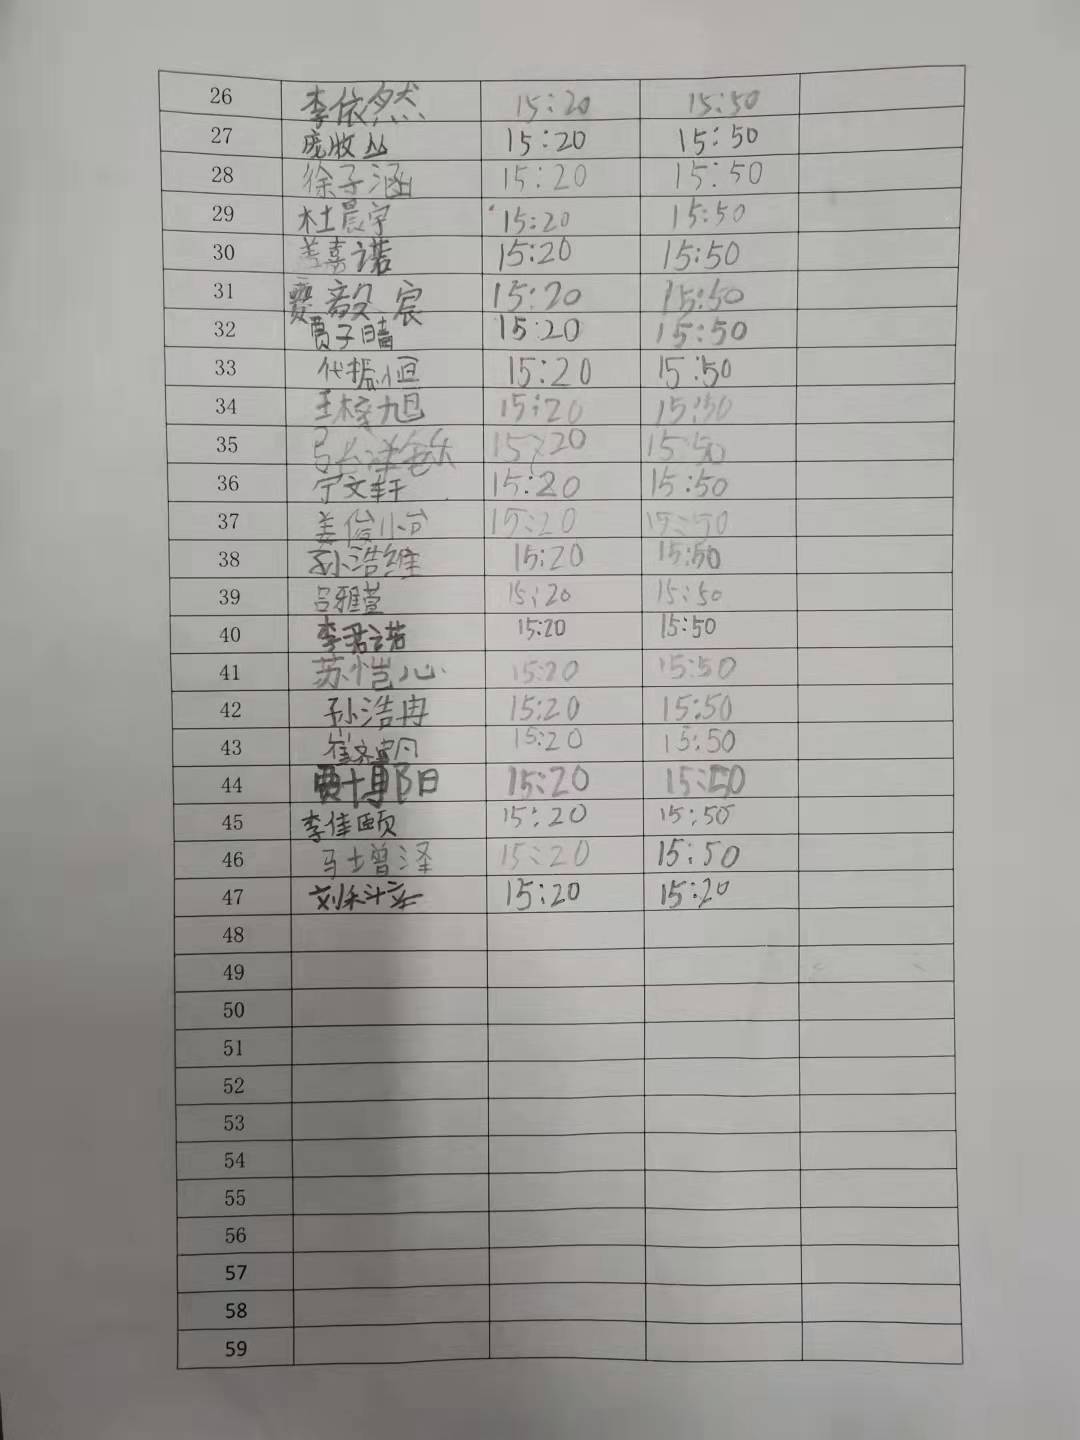 26 李依然 15:20 15:50
27 庞收丛 15:20 15:50
28 徐子涵 15:20 15:50
29 杜晨宇 15:20 15:50
30 姜嘉诺 15:20 15:50
31 毅宸 15:20 15:50
32 贾子晴 15:20 15:50
33 代振恒 15:20 15:50
34 王梓旭 15:20 15:50
35 张洋 15:20 15:50
36 宁文轩 15:20 15:50
37 姜俊 15:20 15:50
38 孙浩维 15:20 15:50
39 吕雅萱 15:20 15:50
40 李君诺 15:20 15:50
41 苏恺心 15:20 15:50
42 孙浩冉 15:20 15:50
43 崔 15:20 15:50
44 贾博阳 15:20 15:50
45 李佳颐 15:20 15:50
46 马增泽 15:20 15:50
47 刘 15:20 15:20
48
49
50
51
52
53
54
55
56
57
58
59